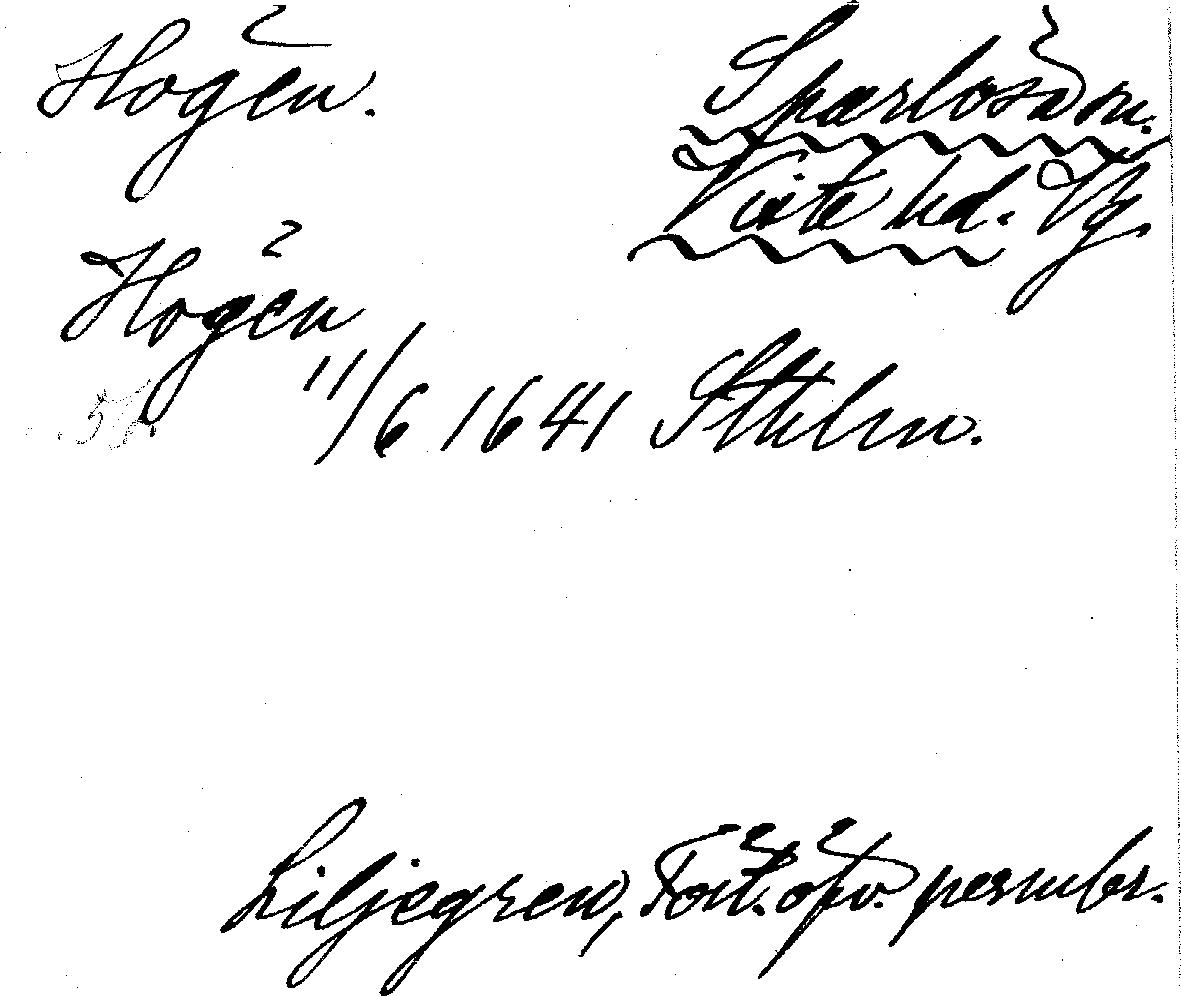 Högen.
Sparlösa sn.
Viste hd. Vg.
Högen
11/6 1641 Sthlm.
Liljegren, Fört. öfv. permbr.